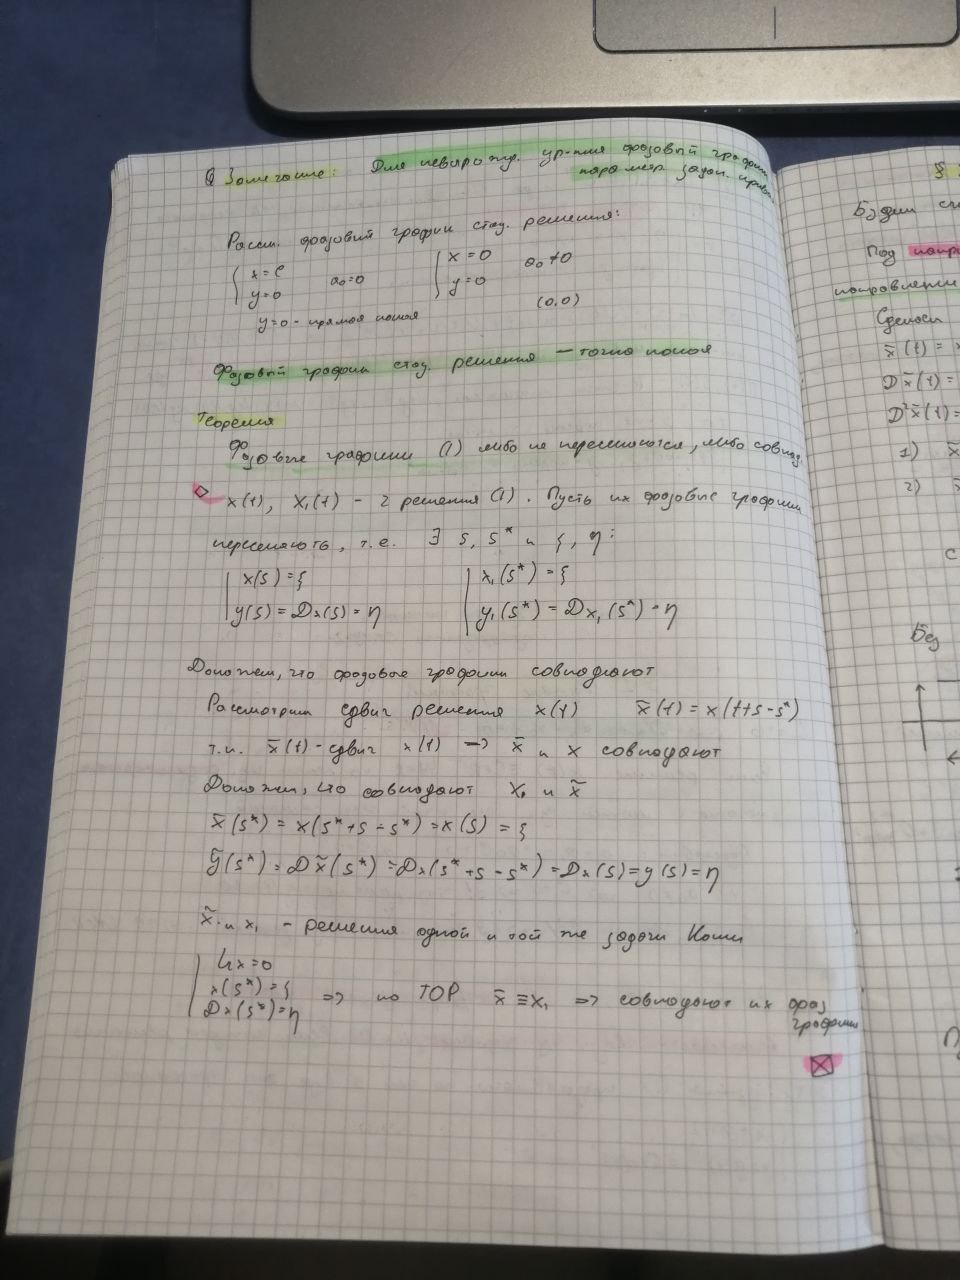 Замечание: Для невырожд. ур-ния фазовый график
парамер. задан. крив
Рассм. фазовый график стац. решения:
{ x = C
y = 0 a₀=0
{ x = 0
y = 0 a₀≠0
y=0 - прямая покоя
(0,0)
Фазовый график стац. решения — точка покоя
Теорема
Фазовые графики (1) либо не пересекаются, либо совпад.
◇ x(t), x₁(t) - 2 решения (1). Пусть их фазовые графики
пересекаются, т.е. ∃ s, s* и ξ, η:
{ x(s) = ξ
y(s) = Dx(s) = η
{ x₁(s*) = ξ
y₁(s*) = Dx₁(s*) = η
Докажем, что фазовые графики совпадают
Рассмотрим сдвиг решения x(t) x̃(t) = x(t+s-s*)
т.к. x̃(t) - сдвиг x(t) => x̃ и x совпадают
Докажем, что совпадают x₁ и x̃
x̃(s*) = x(s*+s-s*) = x(s) = ξ
ỹ(s*) = Dx̃(s*) = Dx(s*+s-s*) = Dx(s) = y(s) = η
x̃ и x₁ - решения одной и той же задачи Коши
{ Lx=0
x(s*) = ξ
Dx(s*) = η => по ТОР x̃ ≡ x₁ => совпадают их фаз
графики
§
Будем
Под
направлении
Сделаем
x̃(t) =
Dx̃(t) =
D²x̃(t) =
1) x̃
2)
с
Без